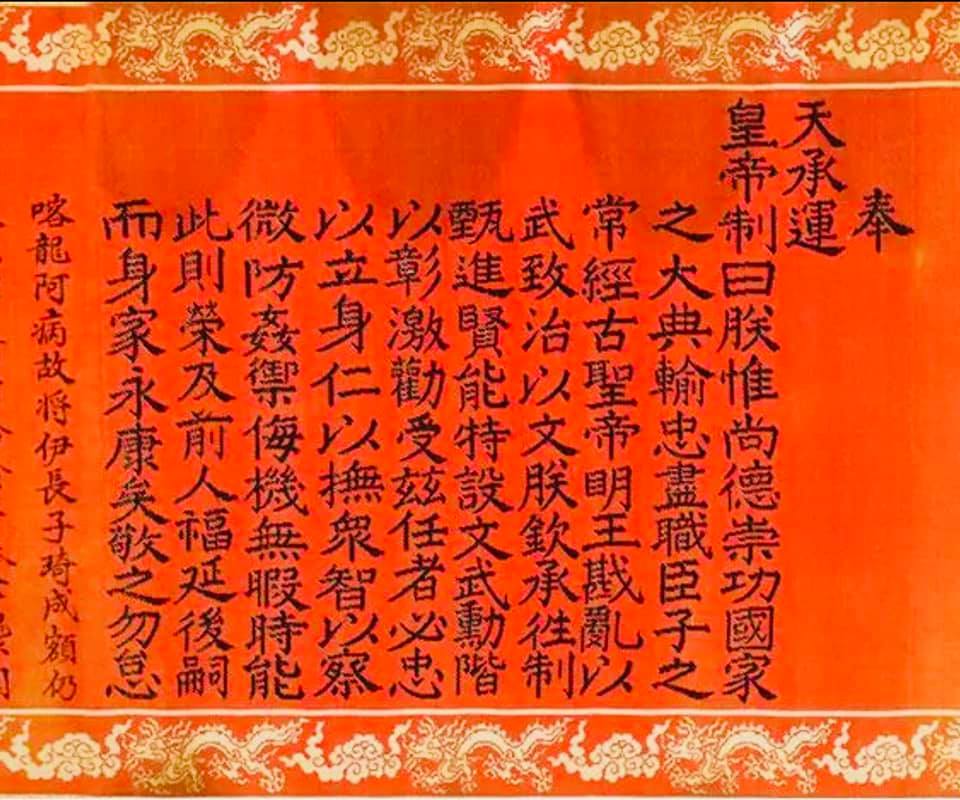 奉
天承運
皇帝制曰朕惟尚德崇功國家
之大典輸忠盡職臣子之
常經古聖帝明王戡亂以
武致治以文朕欽承往制
甄進賢能特設文武勳階
以彰激勸受茲任者必忠
以立身仁以撫眾智以察
微防姦禦侮機無暇時能
此則榮及前人福延後嗣
而身家永康矣敬之勿怠
喀龍阿病故將伊長子琦成額仍